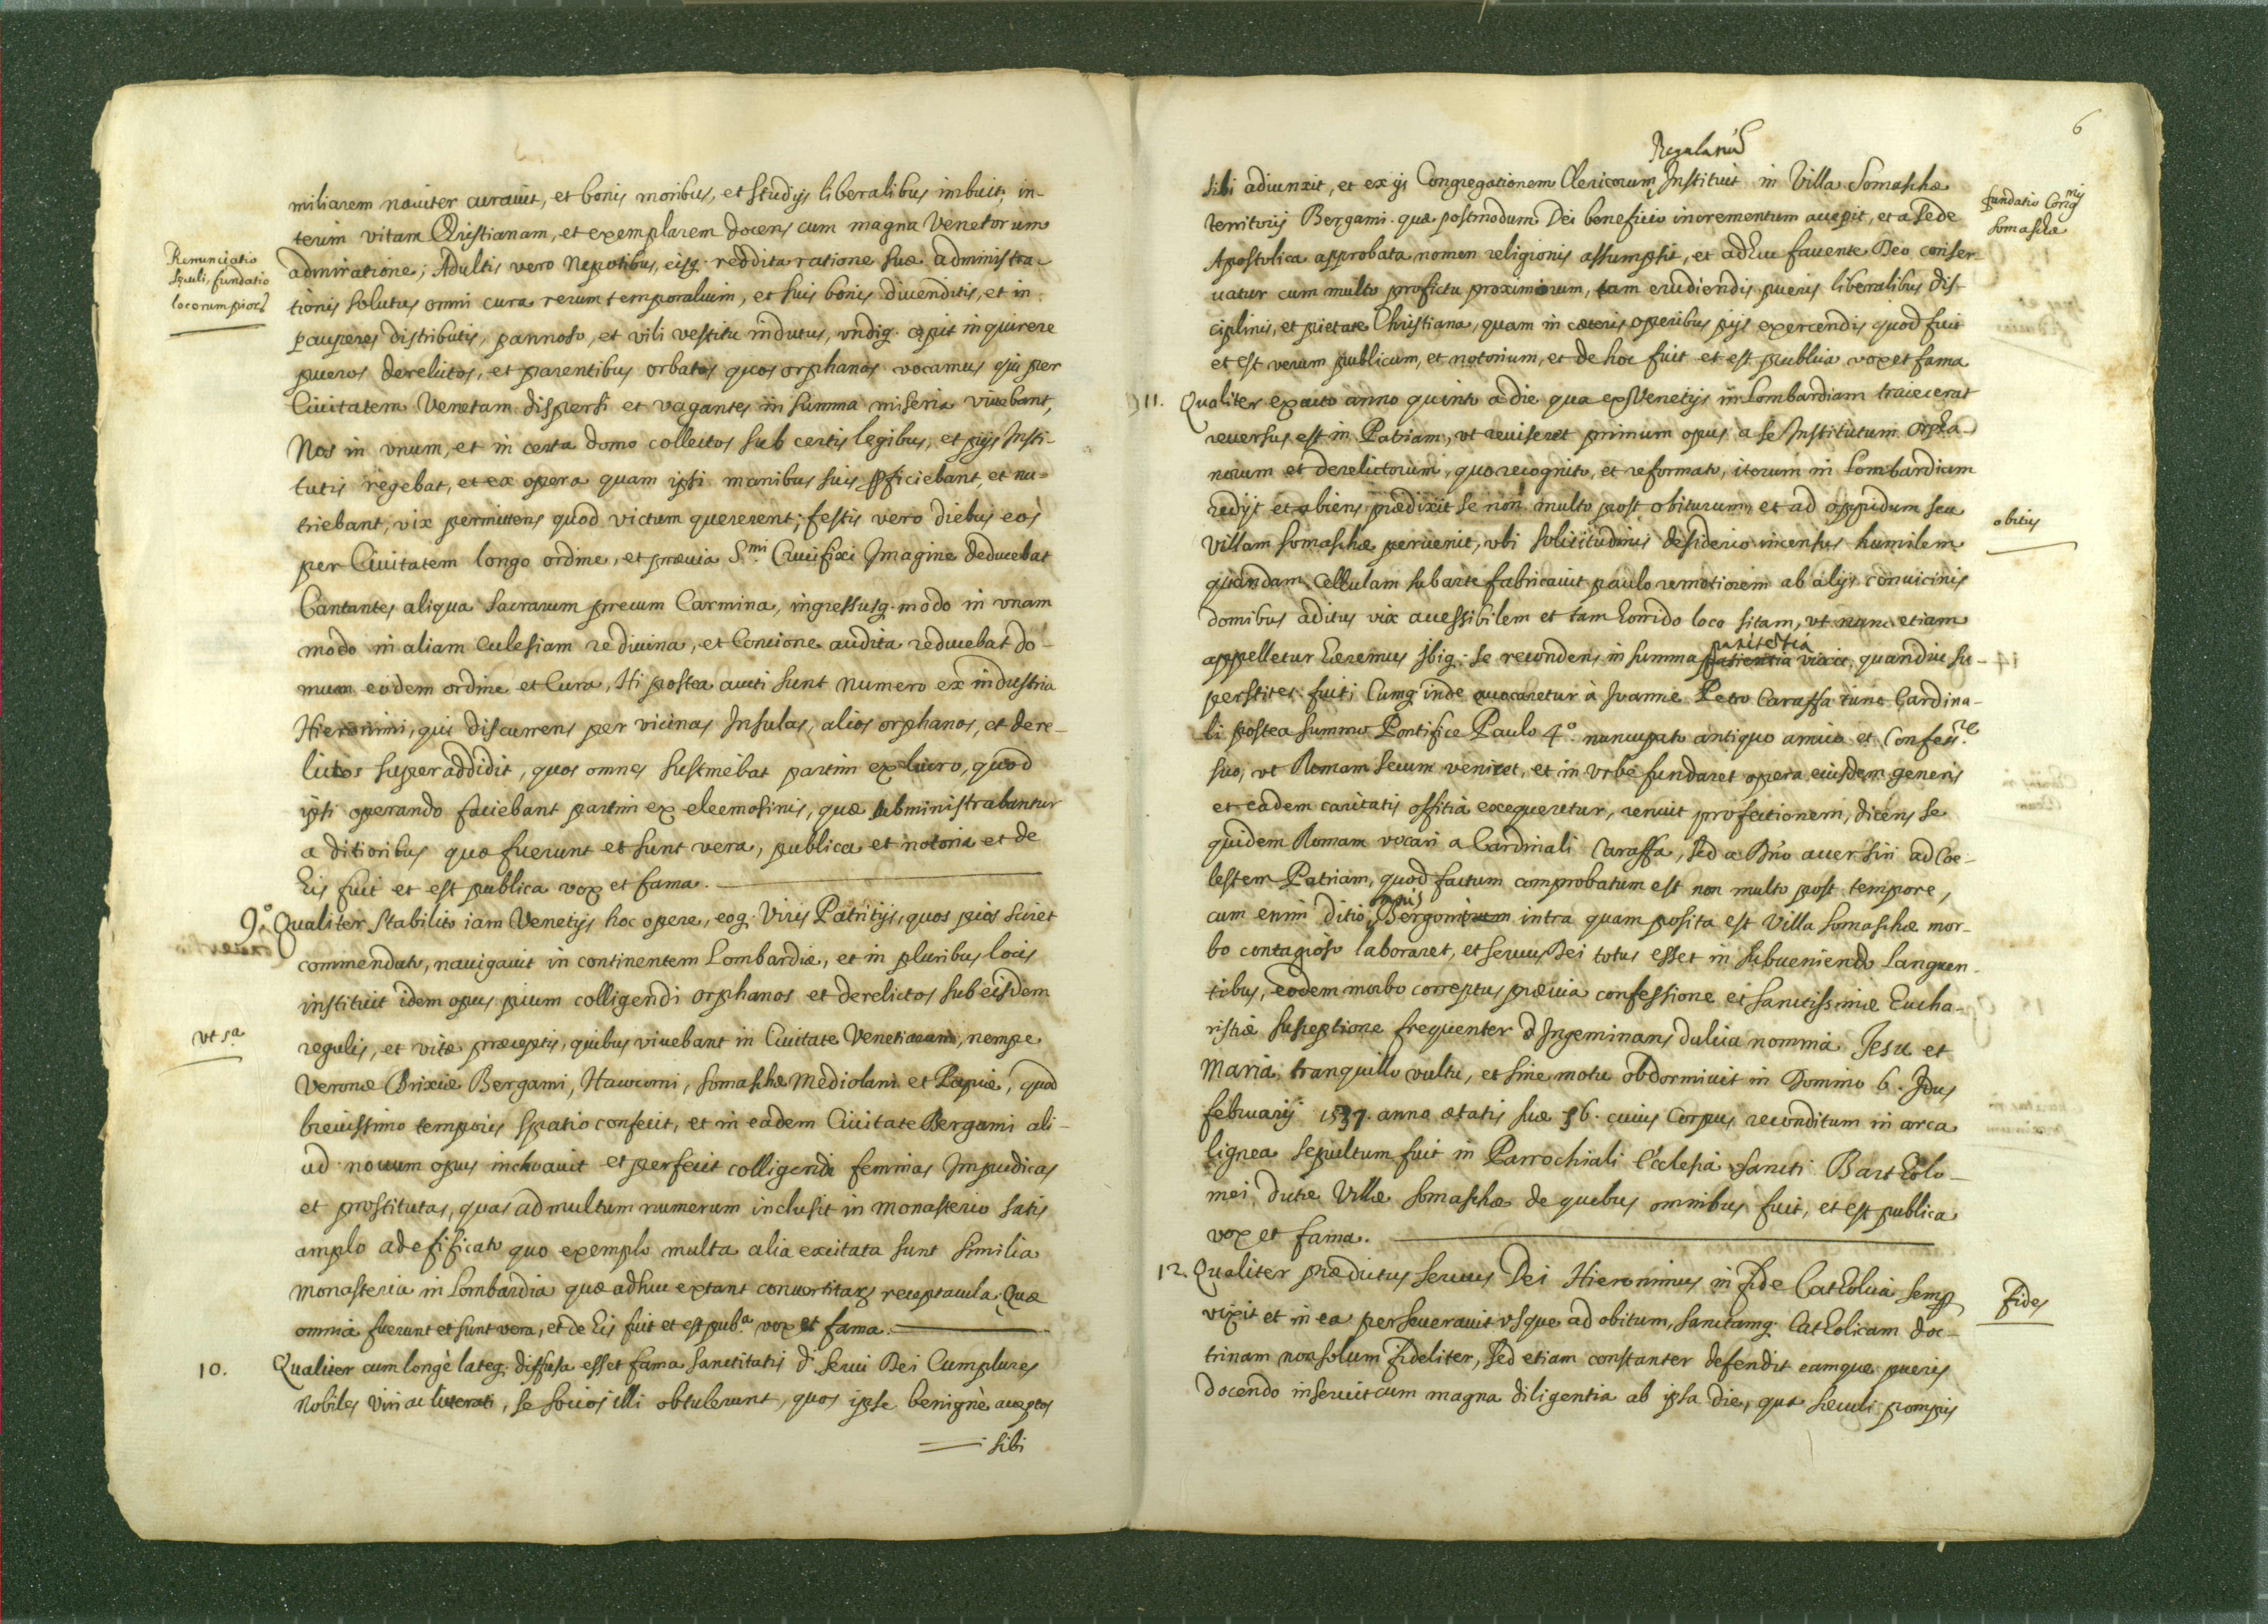 miliarem naviter curavit, et bonis moribus, et studijs liberalibus imbuit; in-
terim vitam Christianam, et exemplarem docens cum magna Venetorum
Renunciatio
sęculi, fundatio
locorum pior.
admiratione; Adultis vero Nepotibus, eisq. reddita ratione suæ administra-
tionis solutus omni cura rerum temporalium, et suis bonis divenditis, et in
pauperes distributis, pannoso, et vili vestitu indutus, undiq. cępit inquirere
pueros derelictos, et parentibus orbatos quos orphanos vocamus qui per
Civitatem Venetam dispersi et vagantes in summa miseria vivebant,
Nos in unum, et in certa domo collectos sub certis legibus, et pijs Insti-
tutis regebat, et ex opera quam ipsi manibus suis pficiebant, et nu-
triebant, vix permittens quod victum quererent; festis vero diebus eos
per Civitatem longo ordine, et prævia S.mi Crucifixi Imagine deducebat
Cantantes aliqua sacrarum precum Carmina, ingressusq. modo in unam
modo in aliam Ecclesiam re divina, et Concione audita reducebat do-
mum eodem ordine et Cura, Hi postea aucti sunt numero ex industria
Hieronimi, qui discurrens per vicinas Insulas, alios orphanos, et dere-
lictos superaddidit, quos omnes sustinebat partim ex lucro, quod
ipsi operando faciebant partim ex eleemosinis, quæ subministrabantur
a ditioribus quæ fuerunt et sunt vera, publica et notoria et de
his fuit et est publica vox et fama.
9.º Qualiter stabilito iam Venetijs hoc opere, eoq. Viris Patritijs, quos pios sciret
commendato, navigavit in continentem Lombardiæ, et in pluribus locis
instituit idem opus pium colligendi orphanos et derelictos sub eisdem
ut s.a
regulis, et vitæ præceptis, quibus vivebant in Civitate Venetiarum, nempe
Veronæ Brixiæ Bergami, Novocomi, Somaschæ Mediolani et Papiæ, quod
brevissimo temporis spatio confecit, et in eadem Civitate Bergami ali-
ud novum opus inchoavit et perfecit colligendi feminas Impudicas
et prostitutas, quas ad multum numerum inclusit in Monasterio satis
amplo adefificato quo exemplo multa alia excitata sunt similia
Monasteria in Lombardia quæ adhuc extant convertitarum receptacula. Quæ
omnia fuerunt et sunt vera, et de his fuit et est pub.a vox et fama.
10. Qualiter cum longè lateq. diffusa esset fama sanctitatis d. servi Dei Cumplures
Nobiles Viri ac litterati, se socios illi obtulerunt, quos ipse benignè acceptos
sibi
6
Regularium
sibi adiunxit, et ex ijs Congregationem Clericorum Instituit in Villa Somaschæ
fundatio Congnis
Somaschæ
Territorij Bergami quæ postmodum Dei beneficio incrementum accepit, et a sede
Apostolica approbata nomen religionis assumpsit, et adhuc favente Deo conser-
vatur cum multo profictu proximorum, tam erudiendis pueris liberalibus dis-
ciplinis, et pietate Christiana, quam in cæteris operibus pijs exercendis quod fuit
et est verum publicum, et notorium, et de hoc fuit et est publica vox et fama
11. Qualiter exacto anno quinto a die qua ex Venetijs in Lombardiam traiecerat
reversus est in Patriam, ut reviseret primum opus a se Institutum orpha-
norum et derelictorum, quo recognito, et reformato, iterum in Lombardiam
redijt et abiens prædixit se non multo post obiturum, et ad oppidum seu
obitus
Villam Somaschæ pervenit, ubi solicitudinis desiderio incensus humilem
quandam cellulam sub arte fabricavit paulo remotiorem ab alijs convicinis
domibus aditus vix accessibilem et tam horrido loco sitam, ut nunc etiam
pænitentia
appelletur Eremus Ibiq. se recondens in summa patientia vixit, quandiu su-
perstites fuit; Cumq. inde avocaretur à Ioanne Petro Caraffa tunc Cardina-
li postea summo Pontifice Paulo 4.º nuncupato antiquo amico et Confess.re
suo, ut Romam secum veniret, et in Urbe fundaret opera eiusdem generis
et eadem caritatis offitia exequeretur, renuit profectionem, dicens se
quidem Romam vocari a Cardinali Caraffa, sed a Dno accersiri ad Coe-
lestem Patriam, quod factum comprobatum est non multo post tempore,
cum enim ditio Bergomensis intra quam posita est Villa Somaschæ mor-
bo contagioso laboraret, et servus Dei totus esset in subveniendo languen-
tibus, eodem morbo correptus prævia confessione et sanctissimæ Eucha-
ristiæ susceptione frequenter Ingeminans dulcia nomina Jesu et
Maria, tranquillo vultu, et sine motu obdormivit in Domino 6. Idus
februarij 1537. anno ætatis suæ 56. cuius Corpus reconditum in arca
lignea sepultum fuit in Parrochiali Ecclesia sancti Bartholo-
mei dictæ Villæ Somaschæ de quebus omnibus fuit, et est publica
vox et fama.
12. Qualiter prædictus servus Dei Hieronimus in fide Catholica semp
fides
vixit et in ea perseveravit usque ad obitum, sanctamq. Catholicam doc-
trinam non solum fideliter, sed etiam constanter defendit eamque pueris
docendo inservit cum magna diligentia ab ipsa die, qua sæculi pompis